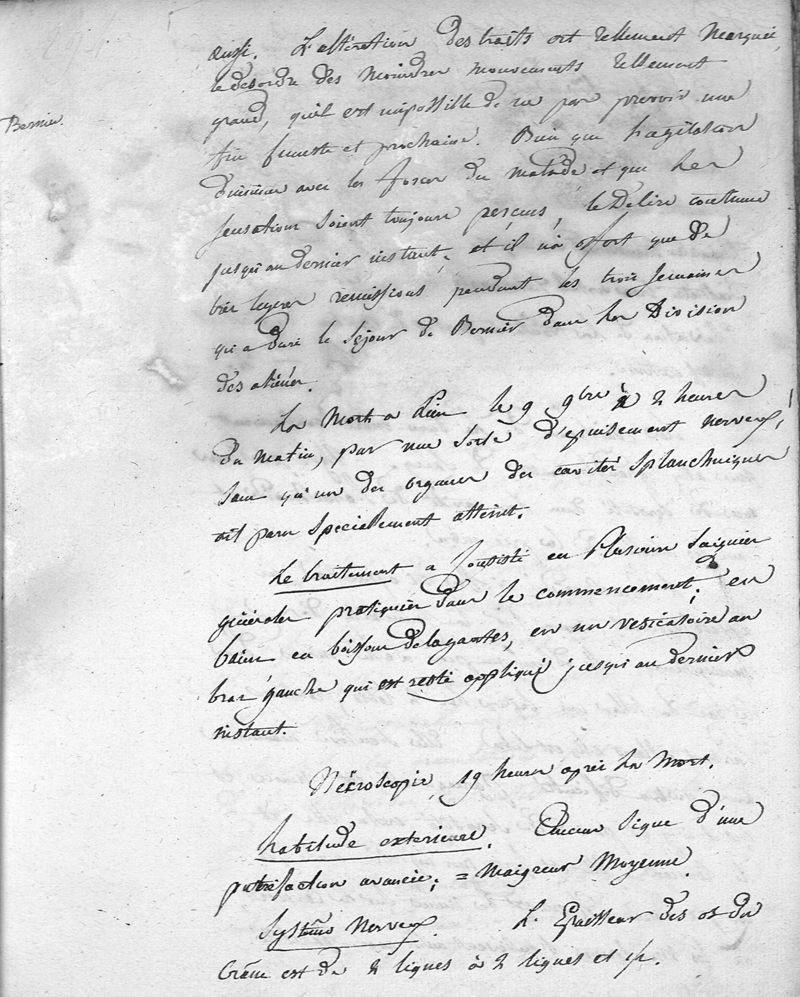 aussi. L'altération des traits est tellement marquée,
le desordre des moindres mouvements tellement
grand, qu'il est impossible de ne pas prevoir une
fin funeste et prochaine. Bien que l'agitation
diminue avec les forces du malade et que les
sensations soient toujours perçues, le Délire continue
jusqu'au dernier instant, et il n'a offert que de
bien legeres remissions pendant les trois semaines
qu'a duré le séjour de Bernier dans la Division
des aliénés.
Bernier.
La mort a lieu le 9 9bre à 2 heures
du matin, par une sorte d'epuisement nerveux,
sans qu'un des organes des cavités splanchniques
ait paru specialement atteint.
Le traitement a consisté en plusieurs saignées
générales pratiquées dans le commencement, en
bains en boissons delayantes, en un vesicatoire au
bras gauche qui est resté appliqué jusqu'au dernier
instant.
Nécroscopie, 19 heures après la mort.
habitude exterieure. Aucun signe d'une
putréfaction avancée; = Maigreur Moyenne.
Systême Nerveux. L'Epaisseur des os du
Crâne est de 2 lignes à 2 lignes et